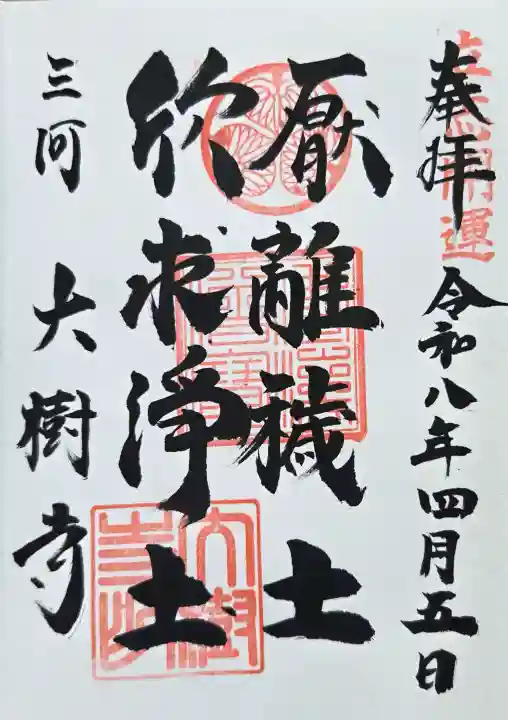 奉拝 令和八年四月五日
厭離穢土
欣求浄土
三河 大樹寺